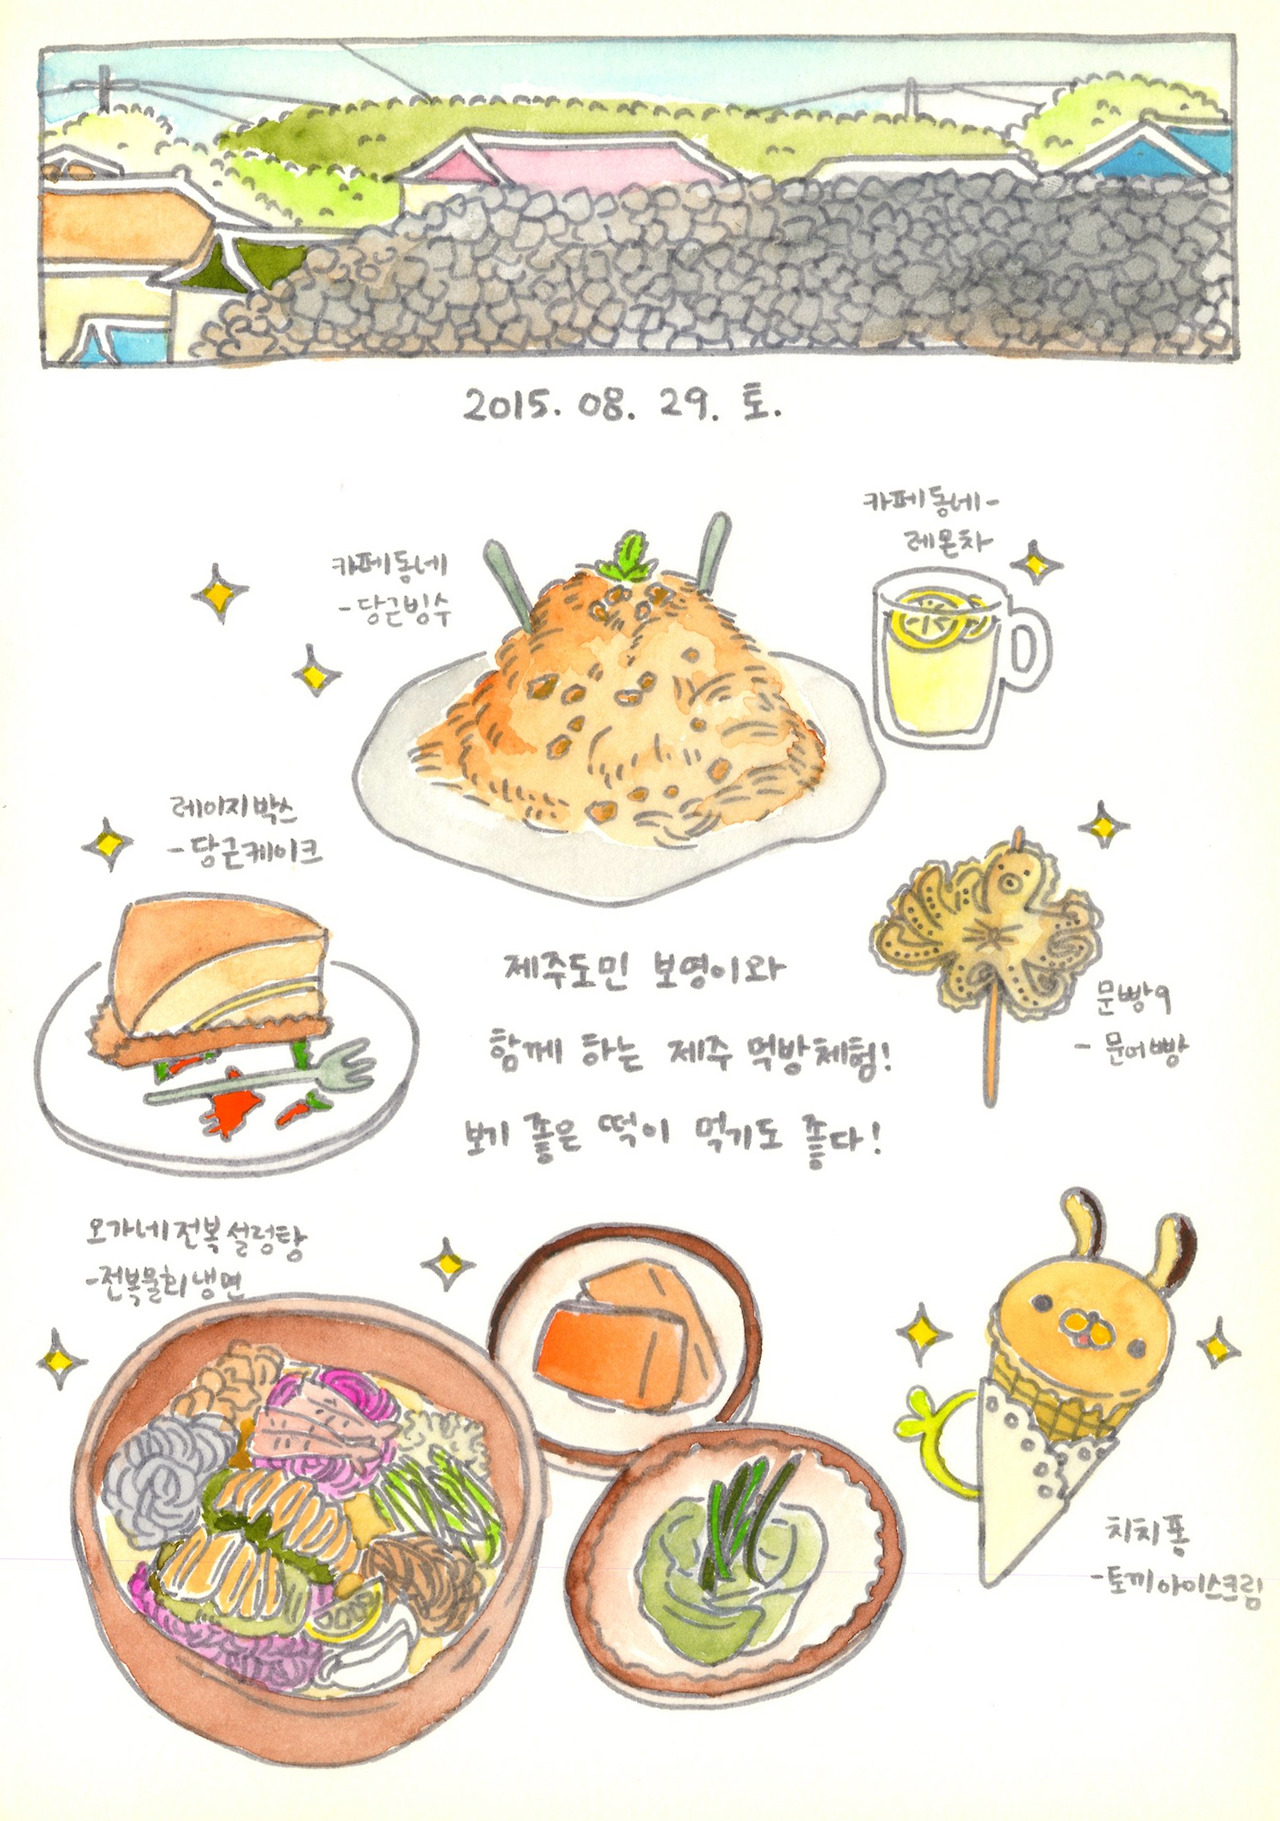 2015. 08. 29. 토.
카페동네-
레몬차
카페동네
-당근빙수
레이지박스
-당근케이크
제주도민 보영이와
함께 하는 제주 먹방체험!
보기 좋은 떡이 먹기도 좋다!
문빵9
- 문어빵
오가네전복설렁탕
-전복물회냉면
치치퐁
-토끼아이스크림